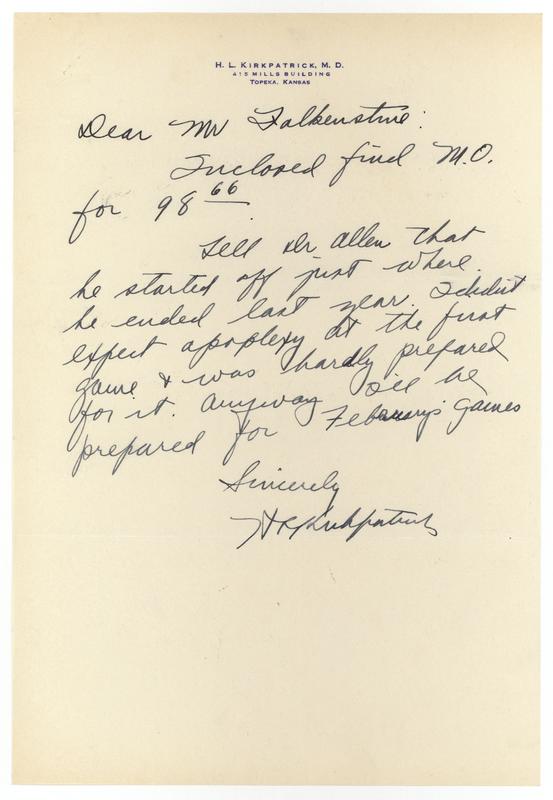 H. L. KIRKPATRICK, M. D.
415 MILLS BUILDING
TOPEKA, KANSAS
Dear Mr Falkenstine:
Inclosed find M.O.
for 98 66
Tell Dr Allen that
he started off just where
he ended last year. I didn't
expect apoplexy at the first
game & was hardly prepared
for it. Anyway I'll be
prepared for February's games
Sincerely
HL Kirkpatrick